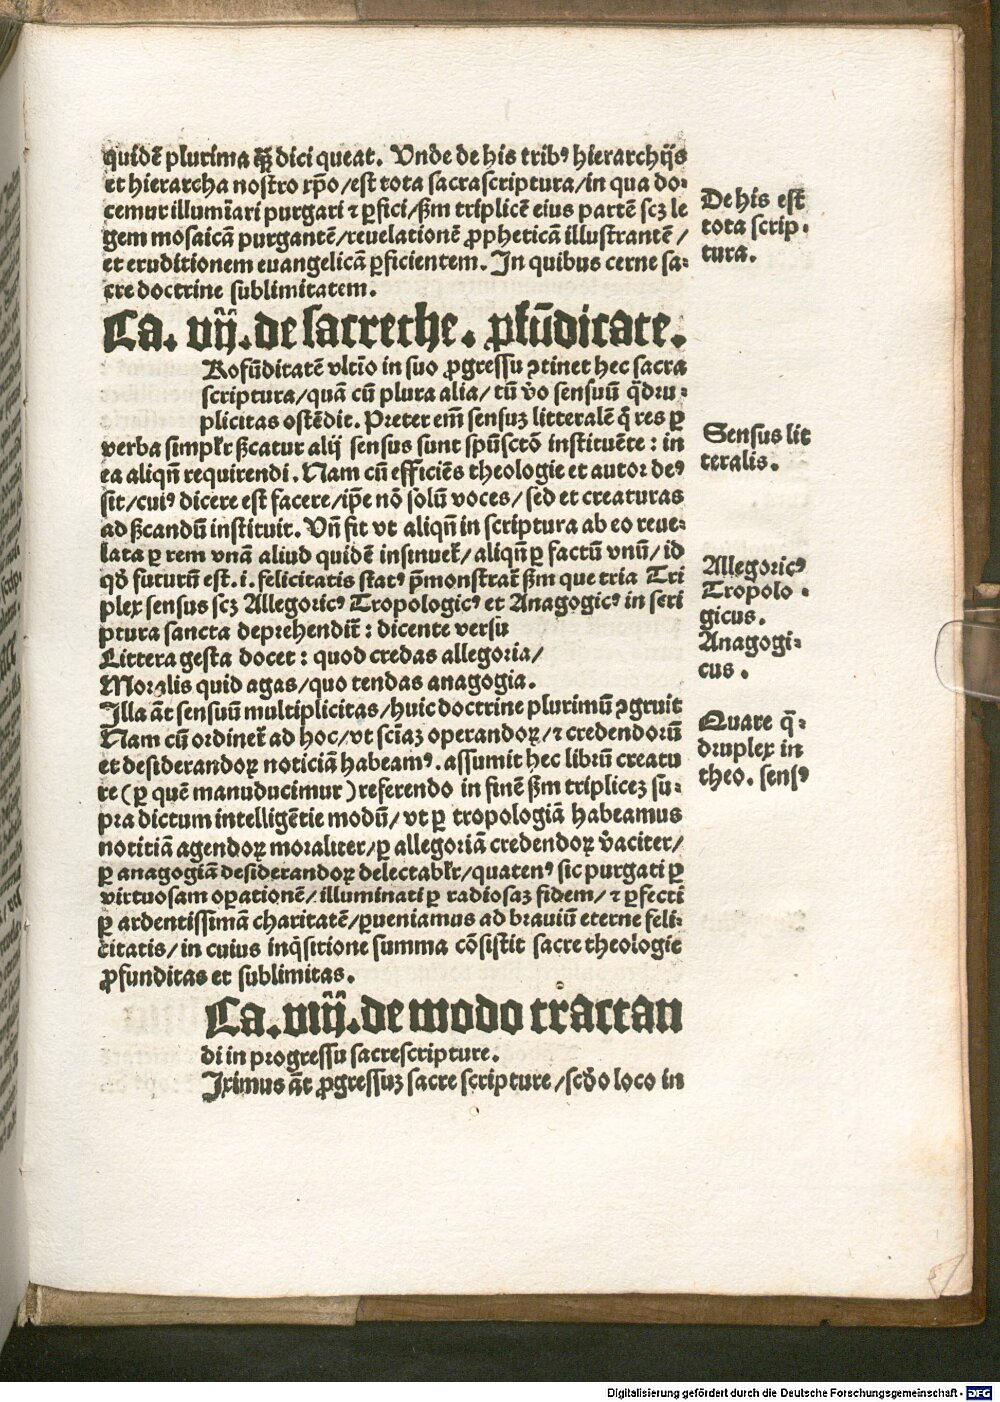 quidē plurima q̄ꝫ dici queat. Vnde de his trib⁹ hierarchijs
et hierarcha nostro xp̄o/est tota sacrascriptura/in qua do⸗
cemur illumīari purgari ⁊ ꝑfici/ẜm triplicē eius partē scꝫ le
gem mosaicā purgantē/reuelationē ꝓpheticā illustrantē/
et eruditionem euangelicā ꝑficientem. In quibus cerne sa⸗
cre doctrine sublimitatem.
De his est
tota scrip⸗
tura.
Ca. vij. de sacre the. ꝓfūditate.
Rofūditatē vltīo in suo ꝓgressu ꝯtinet hec sacra
scriptura/quā cū plura alia/tū v̄o sensuū q̄dru⸗
plicitas ostēdit. Preter em̄ sensuꝫ litteralē q̄ res ꝑ
verba simpl'r ẜcatur alij sensus sunt spūsctō instituēte: in
ea aliqn̄ requirendi. Nam cū efficiēs theologie et autor de⁹
sit/cui⁹ dicere est facere/ip̄e nō solū voces/sed et creaturas
ad ẜcandū instituit. Vn̄ fit vt aliqn̄ in scriptura ab eo reue⸗
lata ꝑ rem vnā aliud quidē insinuet̄/aliqn̄ ꝑ factū vnū/id
qd̄ futurū est .i. felicitatis stat⁹ p̄monstrat̄ ẜm que tria Tri
plex sensus scꝫ Allegoric⁹ Tropologic⁹ et Anagogic⁹ in scri
ptura sancta deprehendit̄: dicente versu
Littera gesta docet: quod credas allegoria/
Moralis quid agas/quo tendas anagogia.
Sensus lit
teralis.
Allegoric⁹
Tropolo⸗
gicus.
Anagogi⸗
cus.
Illa āt sensuū multiplicitas/huic doctrine plurimū ꝯgruit
Nam cū ordinet̄ ad hoc/vt sciaꝫ operandoꝝ/⁊ credendorū
et desiderandoꝝ noticiā habeam⁹. assumit hec librū creatu
re (ꝑ quē manuducimur) referendo in finē ẜm tripliceꝫ su⸗
pra dictum intelligētie modū/vt ꝑ tropologiā habeamus
notitiā agendoꝝ moraliter/ꝑ allegoriā credendoꝝ v̄aciter/
ꝑ anagogiā desiderandoꝝ delectabl'r/quaten⁹ sic purgati ꝑ
virtuosam oꝑationē/illuminati ꝑ radiosaꝫ fidem/⁊ ꝑfecti
ꝑ ardentissimā charitatē/ꝑueniamus ad brauiū eterne feli⸗
citatis/in cuius inq̄sitione summa cōsistit sacre theologie
ꝓfunditas et sublimitas.
Quare q̄⸗
druplex in
theo. sens⁹
Ca. viij. de modo tractan
di in progressu sacrescripture.
Irimus āt ꝓgressuꝫ sacre scripture/scd̄o loco in
Digitalisierung gefördert durch die Deutsche Forschungsgemeinschaft - DFG